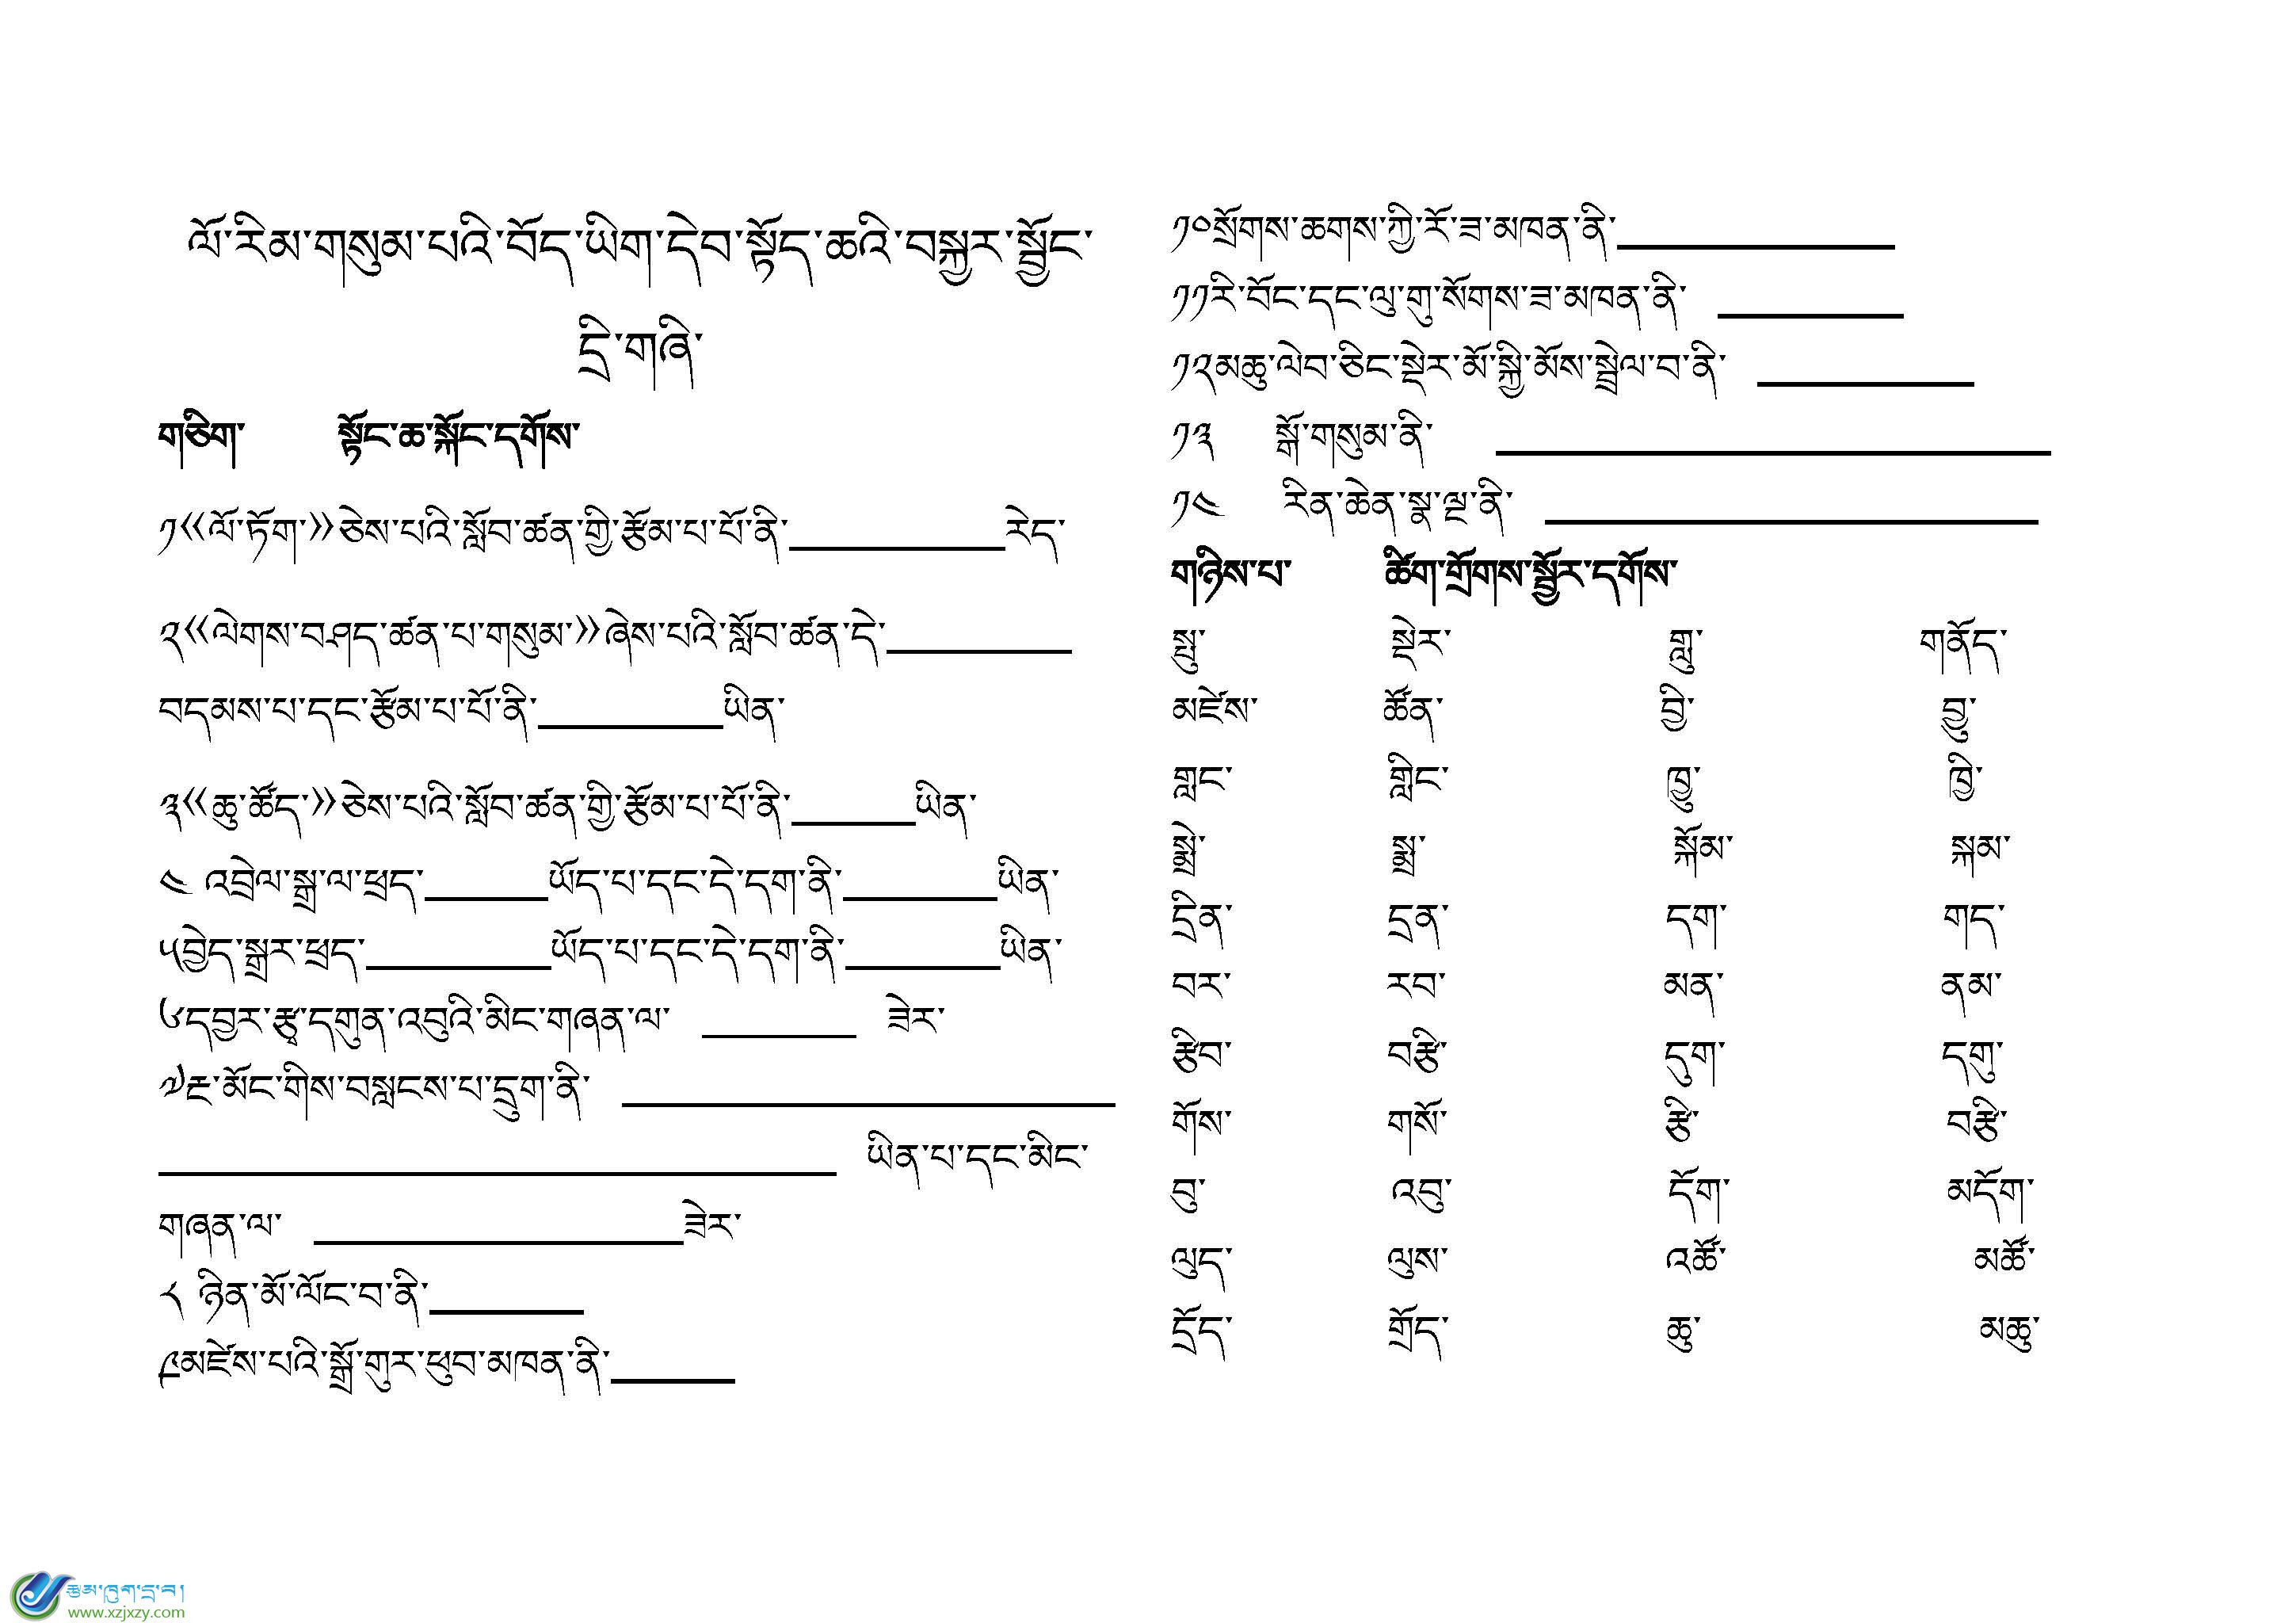 ལོ་རིམ་གསུམ་པའི་བོད་ཡིག་དེབ་སྟོད་ཆའི་བསྐྱར་སྦྱོང་
དྲི་གཞི་
གཅིག་ སྟོང་ཆ་སྐོང་དགོས་
༡《ལོ་ཏོག་》ཅེས་པའི་སློབ་ཚན་གྱི་རྩོམ་པ་པོ་ནི་________རེད་
༢《ལེགས་བཤད་ཚན་པ་གསུམ་》ཞེས་པའི་སློབ་ཚན་དེ་________
བདམས་པ་དང་རྩོམ་པ་པོ་ནི་________ཡིན་
༣《ཆུ་ཚོད་》ཅེས་པའི་སློབ་ཚན་གྱི་རྩོམ་པ་པོ་ནི་______ཡིན་
༤ འབྲེལ་སྒྲ་ལ་ཕྲད་______ཡོད་པ་དང་དེ་དག་ནི་______ཡིན་
༥བྱེད་སྒྲར་ཕྲད་________ཡོད་པ་དང་དེ་དག་ནི་______ཡིན་
༦དབྱར་རྩྭ་དགུན་འབུའི་མིང་གཞན་ལ་ ______ ཟེར་
༧རྔ་མོང་གིས་བསླངས་པ་དྲུག་ནི་ ________________
________________ ཡིན་པ་དང་མིང་
གཞན་ལ་ ____________ཟེར་
༨ ཉིན་མོ་ལོང་བ་ནི་______
༩མཛེས་པའི་སྒྲོ་གུར་ཕུབ་མཁན་ནི་______
༡༠སྲོགས་ཆགས་ཀྱི་རོ་ཟ་མཁན་ནི་__________
༡༡རི་བོང་དང་ལུ་གུ་སོགས་ཟ་མཁན་ནི་ ________
༡༢མཆུ་ལེབ་ཅིང་སྡེར་མོ་སྐྱི་མོས་སྦྲེལ་བ་ནི་ ________
༡༣ སྒོ་གསུམ་ནི་ ________________
༡༤ རིན་ཆེན་སྣ་ལྔ་ནི་ ________________
གཉིས་པ་ ཚིག་གྲོགས་སྦྱོར་དགོས་
སྤུ་ སྡེར་ གླུ་ གནོད་
མཛེས་ ཚོན་ བྱི་ བྱུ་
གླང་ གླིང་ ཁྱུ་ ཁྱི་
སྨྲེ་ སྨྲ་ སྐོམ་ སྐམ་
དྲིན་ དྲན་ དག་ གད་
བར་ རབ་ མན་ ནམ་
རྩིབ་ བརྩི་ དུག་ དགུ་
གོས་ གསོ་ རྩི་ བརྩི་
བུ་ འབུ་ དོག་ མདོག་
ལུད་ ལུས་ འཚོ་ མཚོ་
དྲོད་ གྲོད་ ཆུ་ མཆུ་
རྩམ་ཁུག་དྲ་བ།
www.xzjxzy.com